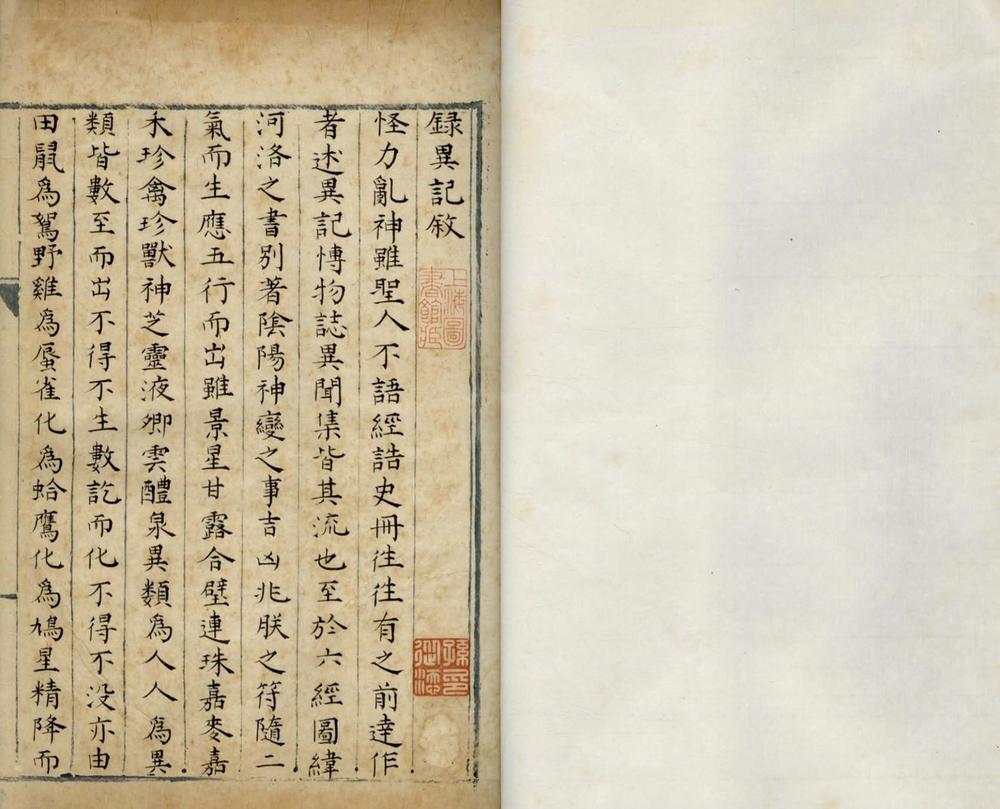 録異記敘
上海圖書館藏
怪力亂神雖聖人不語經誥史冊徃徃有之前達作
者述異記博物誌異聞集皆其流也至於六經圖緯
河洛之書別著陰陽神變之事吉凶兆朕之符隨二
氣而生應五行而出雖景星甘露合璧連珠嘉麥嘉
禾珍禽珍獸神芝靈液卿雲醴泉異類為人人為異
類皆數至而出不得不生數訖而化不得不没亦由
田鼠為鴽野雞為蜃雀化為蛤鷹化為鳩星精降而